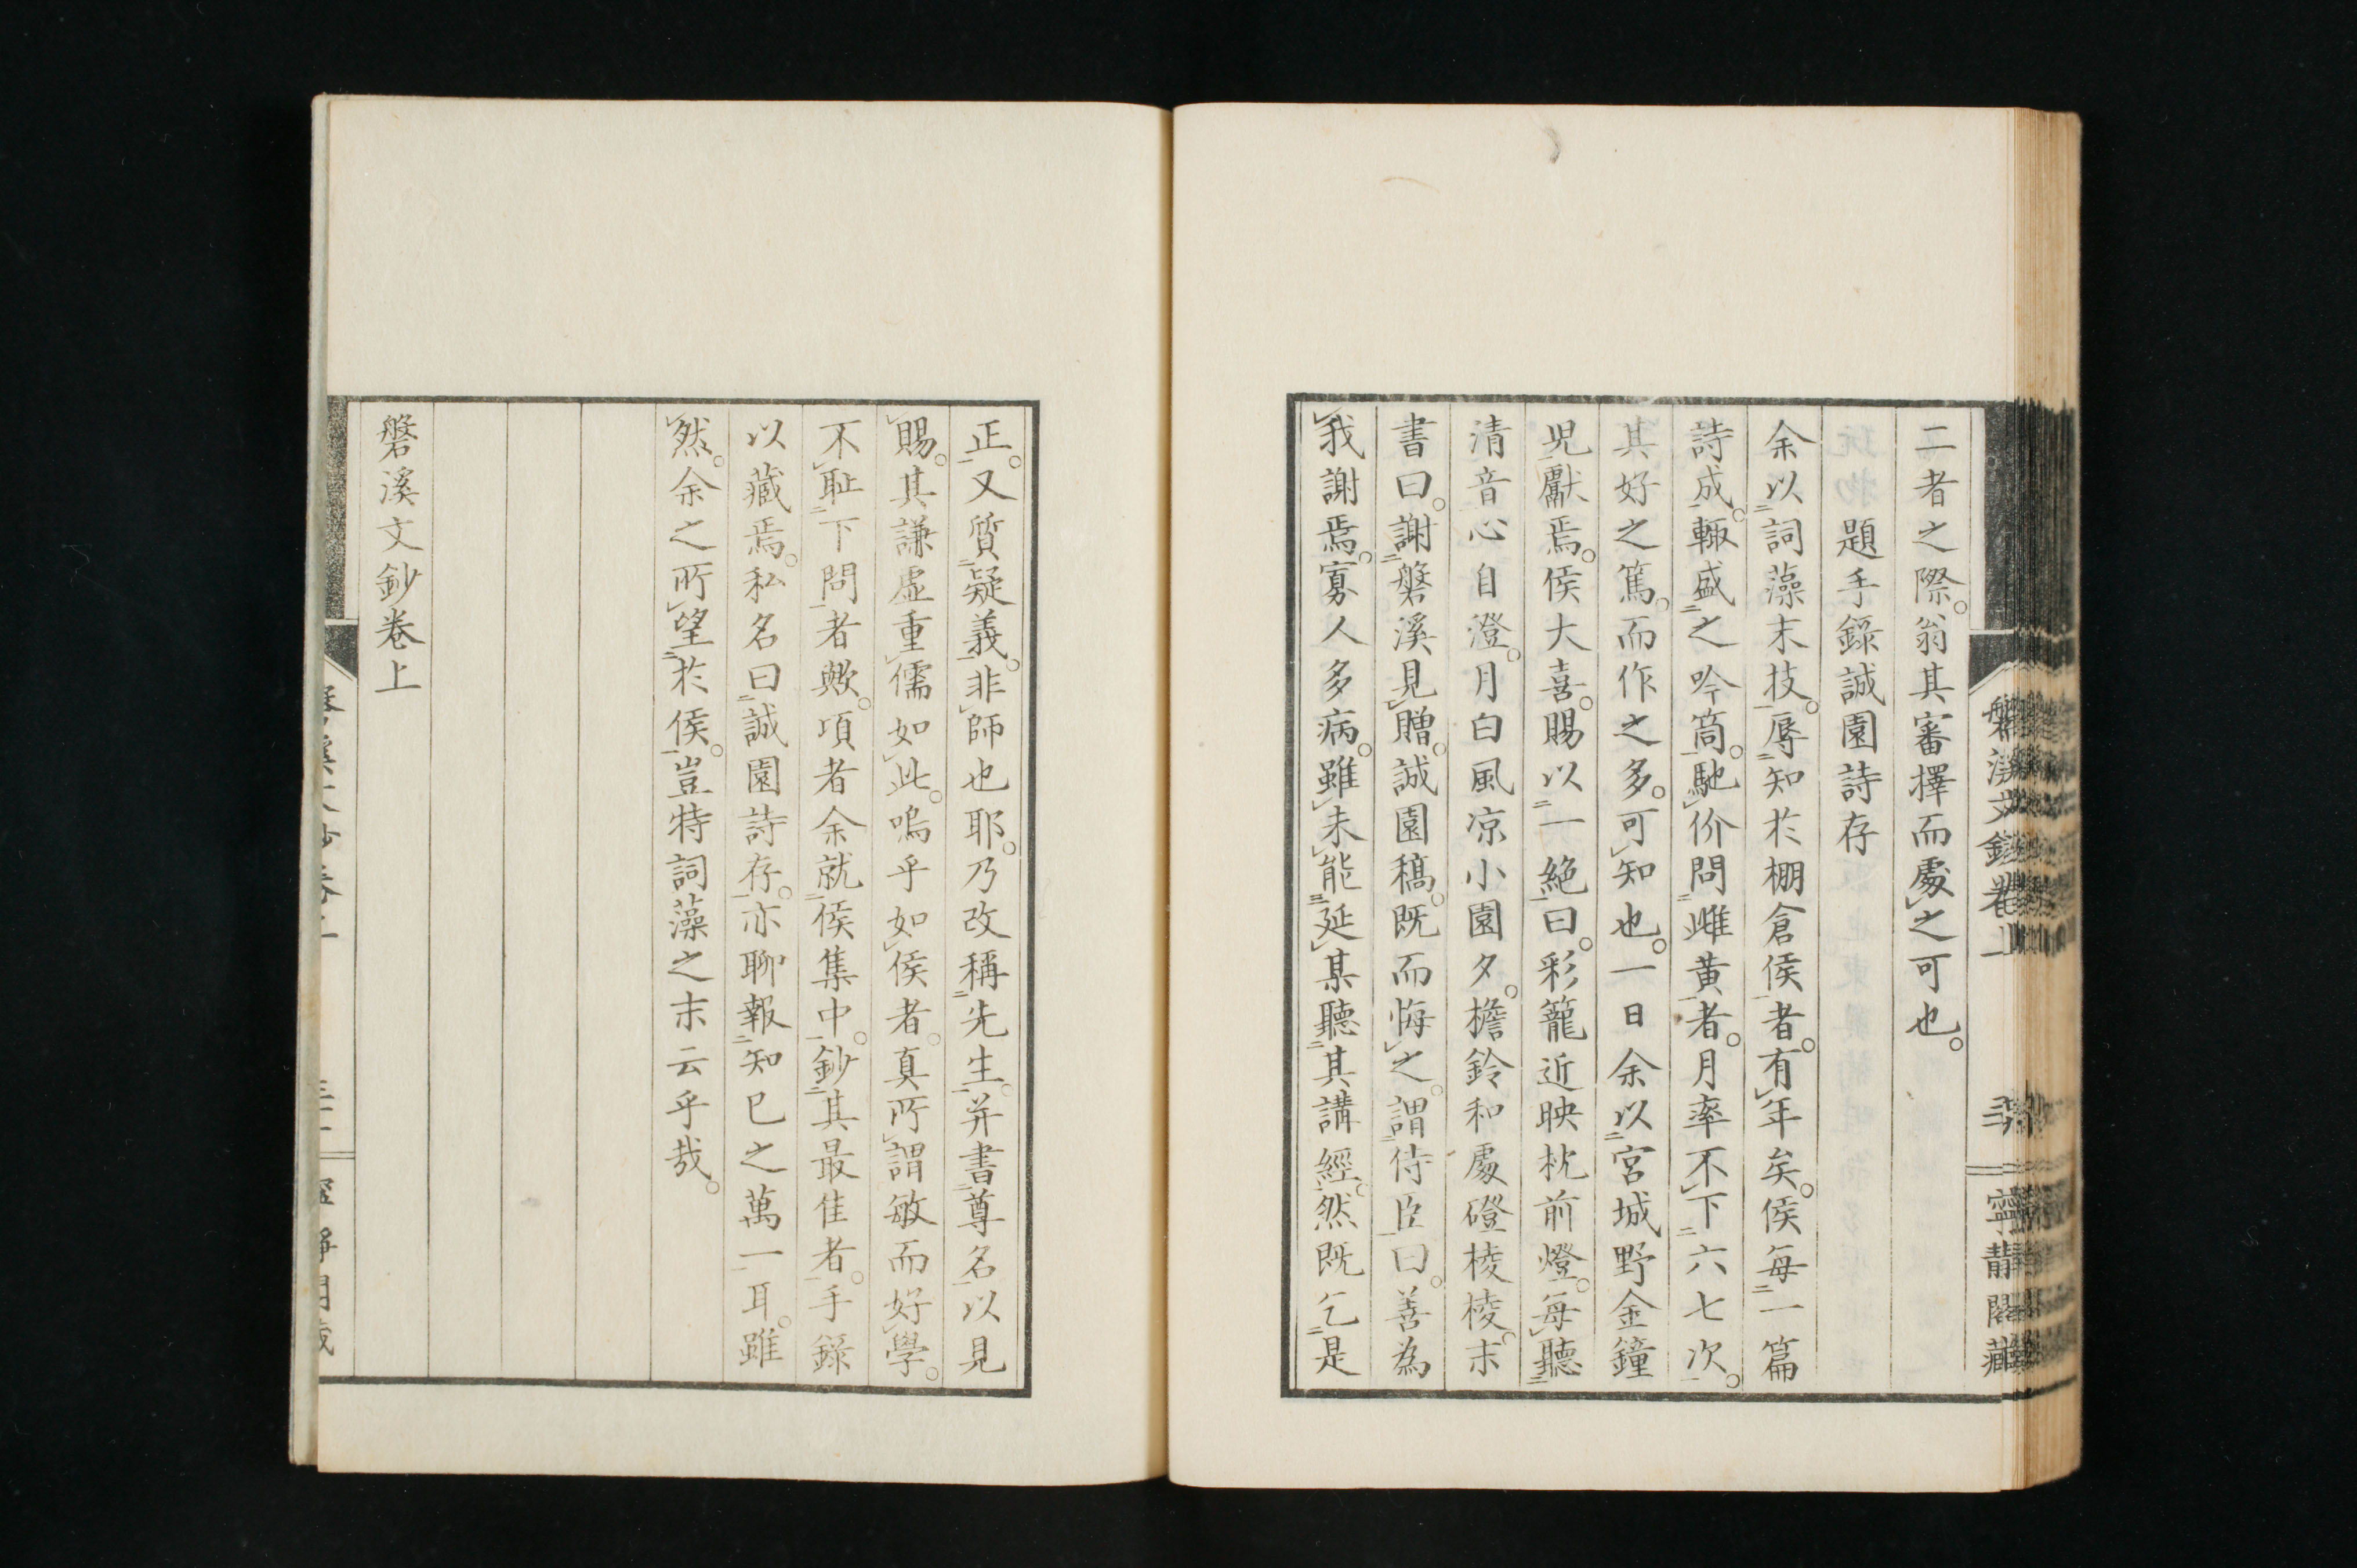 二者之際。翁其審擇而處之可也。
題手錄誠園詩存
余以詞藻末技。辱知於棚倉侯者。有年矣。侯每一篇
詩成。輙盛之吟筒。馳价問雌黄者。月率不下六七次。
其好之篤。而作之多。可知也。一日余以宮城野金鐘
児獻焉。侯大喜。賜以一絶曰。彩籠近映枕前燈。每聽
清音心自澄。月白風凉小園夕。檐鈴和處磴棱棱。末
書曰。謝磐溪見贈。誠園稿。既而悔之。謂侍臣曰。善為
我謝焉。寡人多病。雖未能延某聽其講經。然既乞是
正。又質疑義。非師也耶。乃改稱先生。并書尊名以見
賜。其謙虛重儒如此。嗚乎如侯者。真所謂敏而好學。
不恥下問者歟。項者余就侯集中。鈔其最佳者。手錄
以藏焉。私名曰誠園詩存。亦聊報知已之萬一耳。雖
然。余之所望於侯。豈特詞藻之末云乎哉。
磐溪文鈔卷上